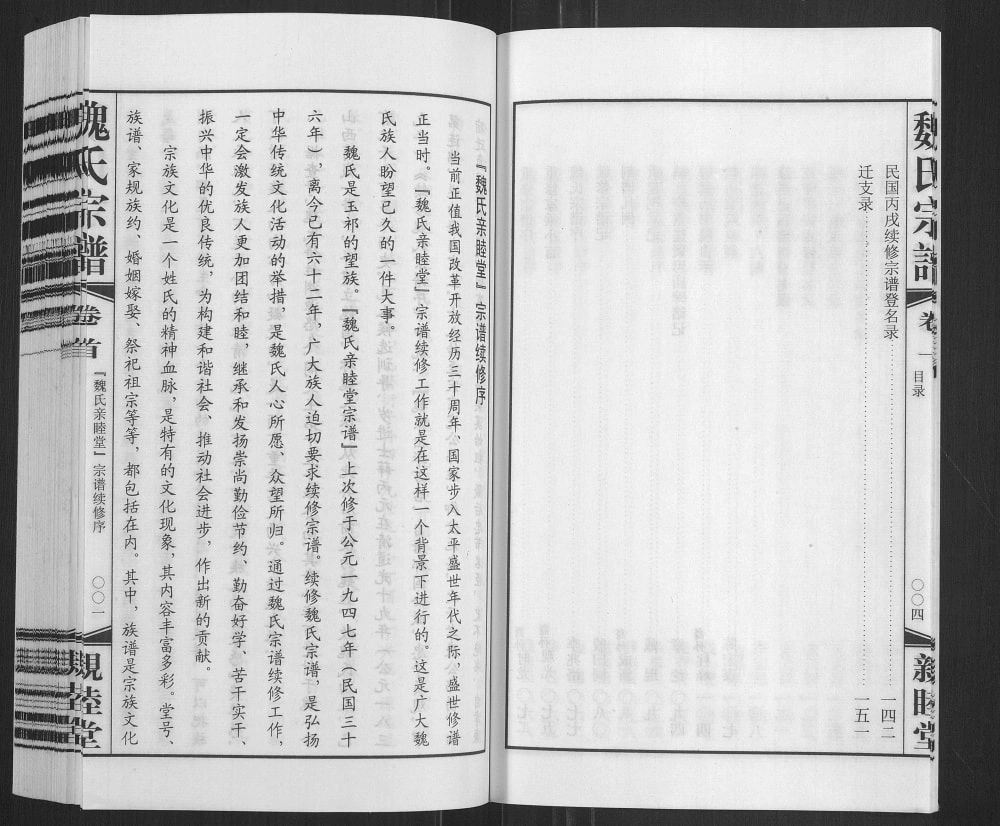 魏氏宗谱
卷一
目录
〇〇四
亲睦堂
民国丙戌续修宗谱登名录……一四二
迁支录……一五一
『魏氏亲睦堂』宗谱续修序
当前正值我国改革开放经历三十周年，国家步入太平盛世年代之际，盛世修谱
正当时。『魏氏亲睦堂』宗谱续修工作就是在这样一个背景下进行的。这是广大魏
氏族人盼望已久的一件大事。
魏氏是玉祁的望族。『魏氏亲睦堂宗谱』上次修于公元一九四七年（民国三十
六年），离今已有六十二年，广大族人迫切要求续修宗谱。续修魏氏宗谱，是弘扬
中华传统文化活动的举措，是魏氏人心所愿、众望所归。通过魏氏宗谱续修工作，
一定会激发族人更加团结和睦，继承和发扬崇尚勤俭节约、勤奋好学、苦干实干、
振兴中华的优良传统，为构建和谐社会、推动社会进步，作出新的贡献。
宗族文化是一个姓氏的精神血脉，是特有的文化现象，其内容丰富多彩。堂号、
族谱、家规族约、婚姻嫁娶、祭祀祖宗等等，都包括在内。其中，族谱是宗族文化
魏氏宗谱
卷首
『魏氏亲睦堂』宗谱续修序
〇〇一
亲睦堂